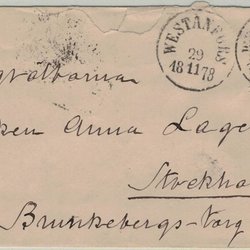 WESTANFORS
29
18 11 78
gvälborna
ken Anna Lage
Stockho
Brunkebergs-Torg